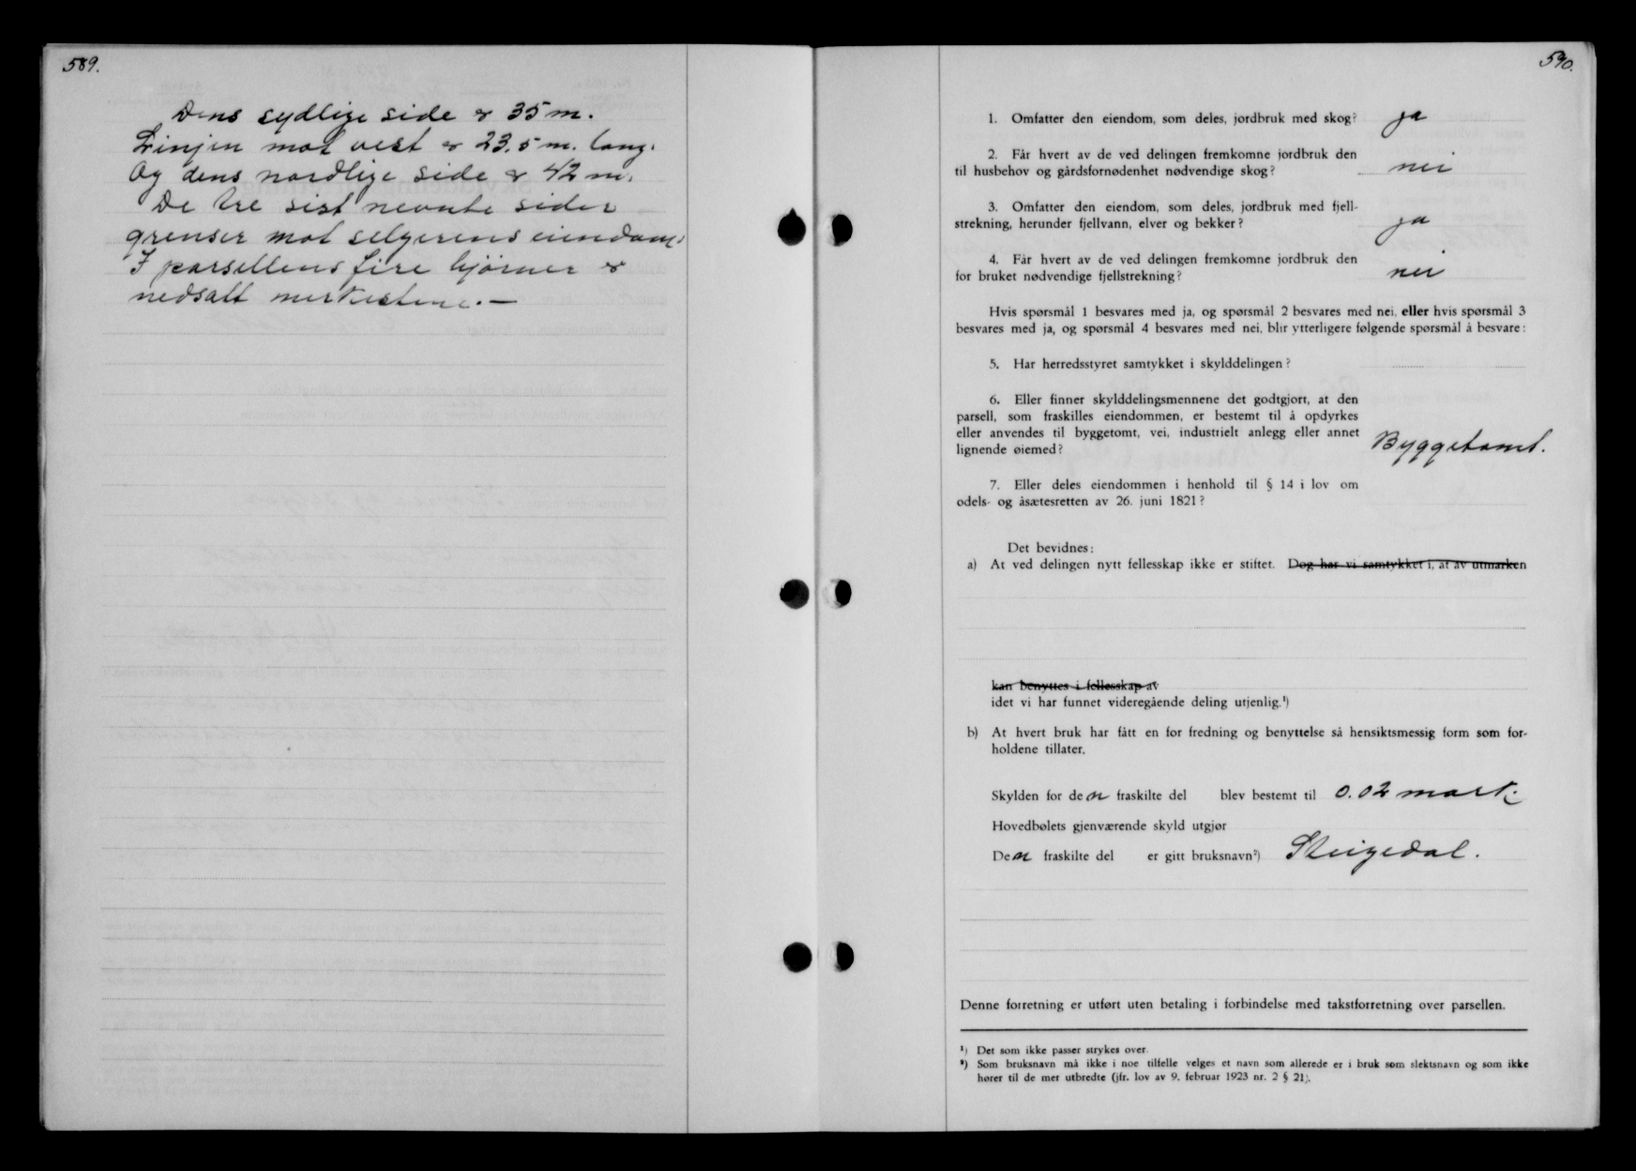 589.
Dens sydlige side er 35 m.
Linjen mot vest er 23.5 m. lang.
Og dens nordlige side er 42 m.
De tre sist nevnte sider
grenser mot selgerens eiendom.
I parsellens fire hjörner er
nedsatt merkestene. —
590.
1. Omfatter den eiendom, som deles, jordbruk med skog? ja
2. Får hvert av de ved delingen fremkomne jordbruk den
til husbehov og gårdsfornødenhet nødvendige skog? nei
3. Omfatter den eiendom, som deles, jordbruk med fjell-
strekning, herunder fjellvann, elver og bekker? ja
4. Får hvert av de ved delingen fremkomne jordbruk den
for bruket nødvendige fjellstrekning? nei
Hvis spørsmål 1 besvares med ja, og spørsmål 2 besvares med nei, eller hvis spørsmål 3
besvares med ja, og spørsmål 4 besvares med nei, blir ytterligere følgende spørsmål å besvare:
5. Har herredsstyret samtykket i skylddelingen?
6. Eller finner skylddelingsmennene det godtgjort, at den
parsell, som fraskilles eiendommen, er bestemt til å opdyrkes
eller anvendes til byggetomt, vei, industrielt anlegg eller annet
lignende øiemed? Byggetomt.
7. Eller deles eiendommen i henhold til § 14 i lov om
odels- og åsætesretten av 26. juni 1821?
Det bevidnes:
a) At ved delingen nytt fellesskap ikke er stiftet. Dog har vi samtykket i, at av utmarken
kan benyttes i fellesskap av
idet vi har funnet videregående deling utjenlig.¹)
b) At hvert bruk har fått en for fredning og benyttelse så hensiktsmessig form som for-
holdene tillater.
Skylden for den fraskilte del blev bestemt til 0.02 mark.
Hovedbølets gjenværende skyld utgjør
Den fraskilte del er gitt bruksnavn²) Steigedal.
Denne forretning er utført uten betaling i forbindelse med takstforretning over parsellen.
¹) Det som ikke passer strykes over.
²) Som bruksnavn må ikke i noe tilfelle velges et navn som allerede er i bruk som slektsnavn og som ikke
hører til de mer utbredte (jfr. lov av 9. februar 1923 nr. 2 § 21).